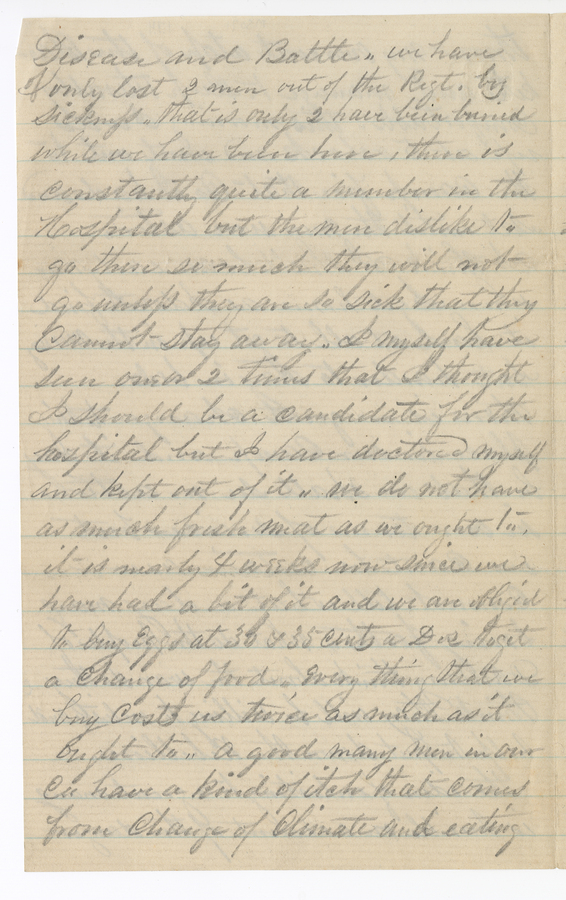 Disease and Battle,, we have
only lost 2 men out of the Regt. by
sickness,, that is only 2 have been buried
while we have been here, there is
constantly quite a number in the
Hospital but the men dislike to
go there so much they will not
go unless they are so sick that they
Cannot stay away,, I myself have
seen one or 2 Times that I thought
I should be a candidate for the
hospital but I have doctored myself
and kept out of it,, we do not have
as much fresh meat as we ought to,
it is nearly 4 weeks now since we
have had a bit of it and we are obliged
to buy Eggs at 30 & 35 cents a Doz to get
a change of food,, Every thing that we
buy Costs us twice as much as it
ought to,, a good many men in our
Co have a kind of itch that comes
from Change of Climate and eating